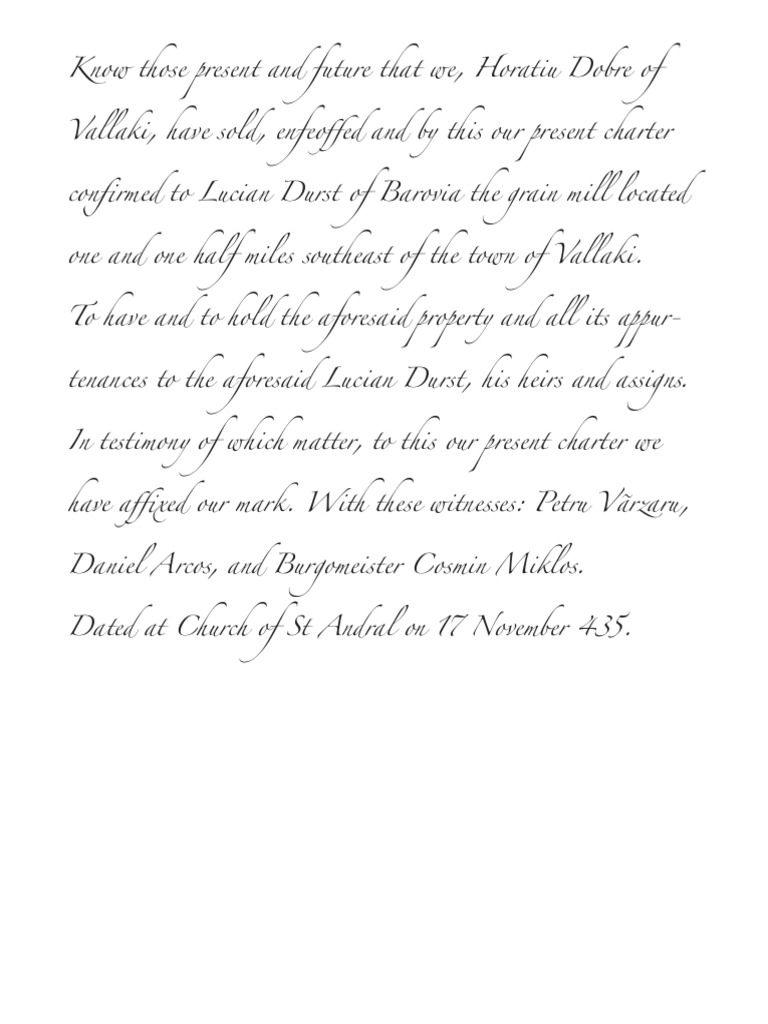 Know those present and future that we, Horatiu Dobre of
Vallaki, have sold, enfeoffed and by this our present charter
confirmed to Lucian Durst of Barovia the grain mill located
one and one half miles southeast of the town of Vallaki.
To have and to hold the aforesaid property and all its appur-
tenances to the aforesaid Lucian Durst, his heirs and assigns.
In testimony of which matter, to this our present charter we
have affixed our mark. With these witnesses: Petru Vãrzaru,
Daniel Arcos, and Burgomeister Cosmin Miklos.
Dated at Church of St Andral on 17 November 435.